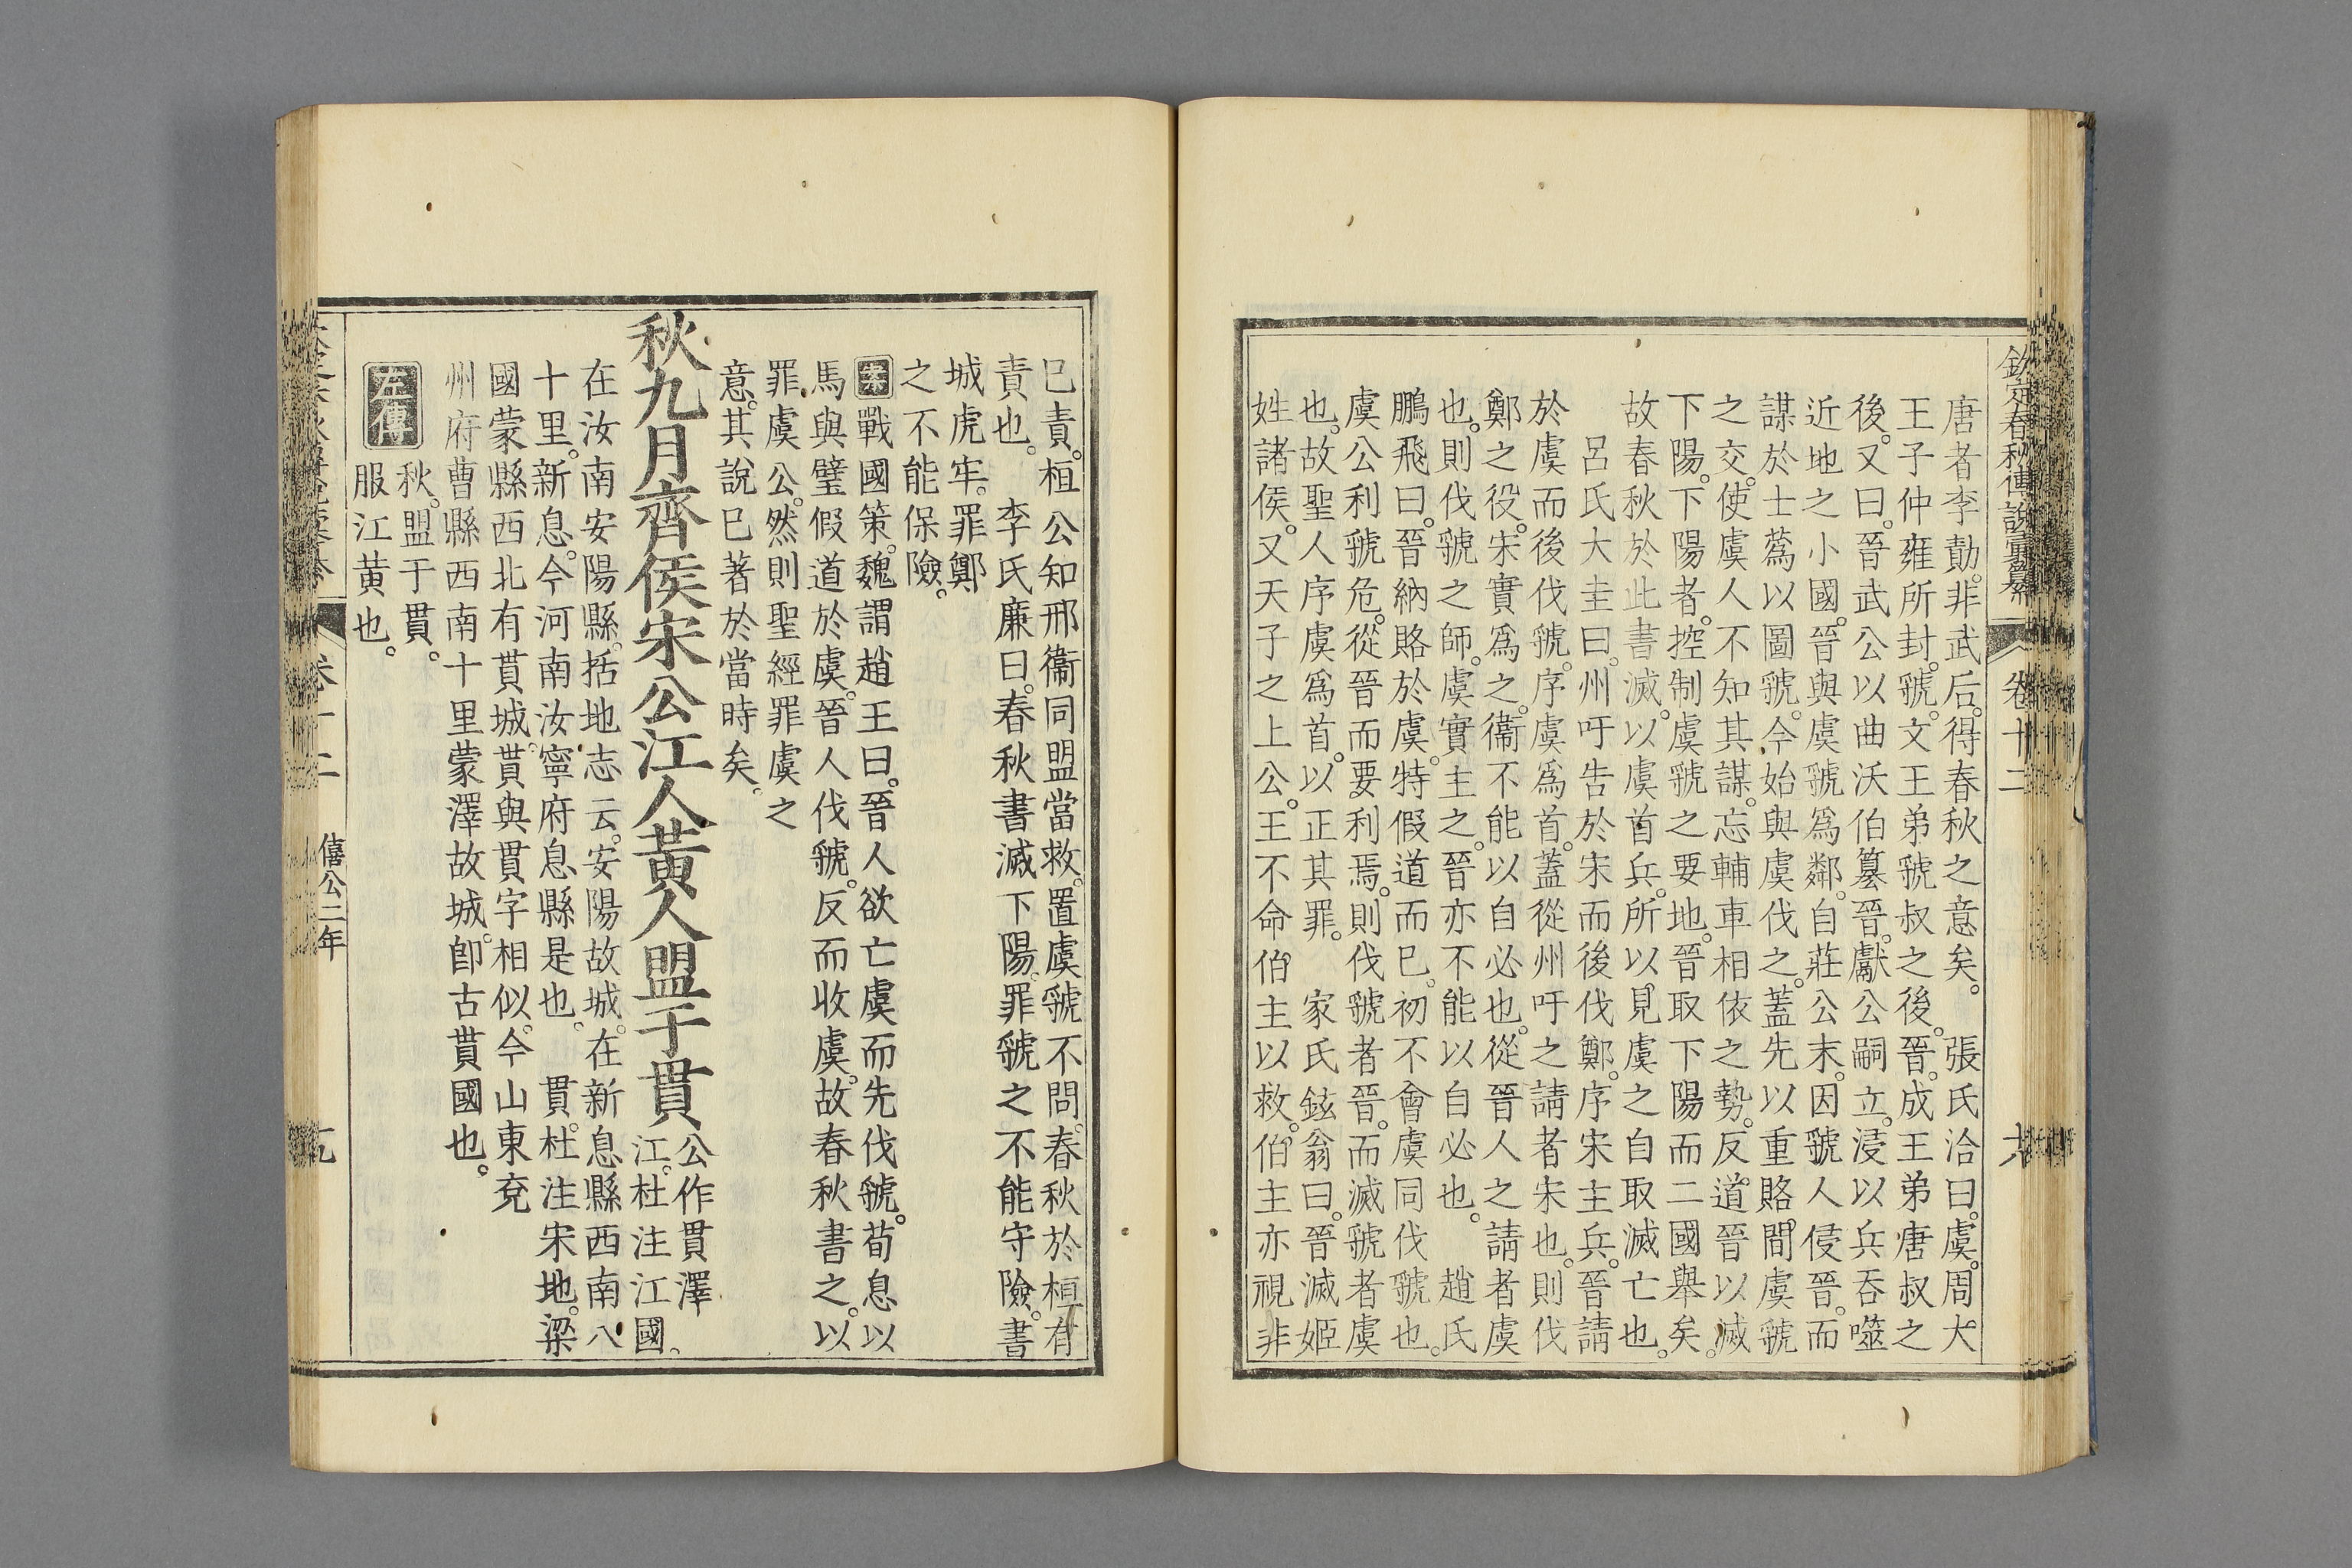 欽定春秋傳說彙纂 卷十二 六
唐者李勣非武后得春秋之意矣。 張氏洽曰虞周大
王子仲雍所封虢文王弟虢叔之後晉成王弟唐叔之
後又曰晉武公以曲沃伯簒晉獻公嗣立浸以兵呑噬
近地之小國晉與虞虢爲鄰自莊公末因虢人侵晉而
謀於士蒍以圖虢今始與虞伐之蓋先以重賂間虞虢
之交使虞人不知其謀忘輔車相依之勢反道晉以滅
下陽下陽者控制虞虢之要地晉取下陽而二國舉矣
故春秋於此書滅以虞首兵所以見虞之自取滅亡也
呂氏大圭曰州吁告於宋而後伐鄭序宋主兵晉請
於虞而後伐虢序虞爲首蓋從州吁之請者宋也則伐
鄭之役宋實爲之衞不能以自必也從晉人之請者虞
也則伐虢之師虞實主之晉亦不能以自必也。 趙氏
鵬飛曰晉納賂於虞特假道而已初不會虞同伐虢也
虞公利虢危從晉而要利焉則伐虢者晉而滅虢者虞
也故聖人序虞爲首以正其罪。 家氏鉉翁曰晉滅姬
姓諸侯又天子之上公王不命伯主以救伯主亦視非
已責桓公知邢衞同盟當救置虞虢不問春秋於桓有
責也。 李氏廉曰春秋書滅下陽罪虢之不能守險書
城虎牢罪鄭
之不能保險。
案戰國策魏謂趙王曰晉人欲亡虞而先伐虢荀息以
馬與璧假道於虞晉人伐虢反而收虞故春秋書之以
罪虞公然則聖經罪虞之
意其說已著於當時矣。
秋九月齊侯宋公江人黃人盟于貫
公作貫澤
江杜注江國
在汝南安陽縣括地志云安陽故城在新息縣西南八
十里新息今河南汝寧府息縣是也。 貫杜注宋地梁
國蒙縣西北有貰城貰與貫字相似今山東兗
州府曹縣西南十里蒙澤故城卽古貰國也。
左傳
秋盟于貫。
服江黃也。
卷十二 僖公二年